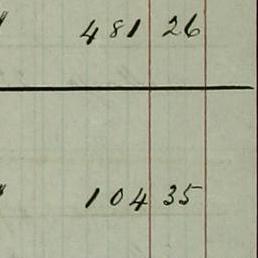 " 481 26
" 104 35